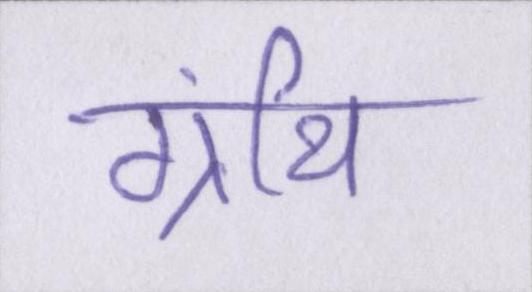 ग्रंथि